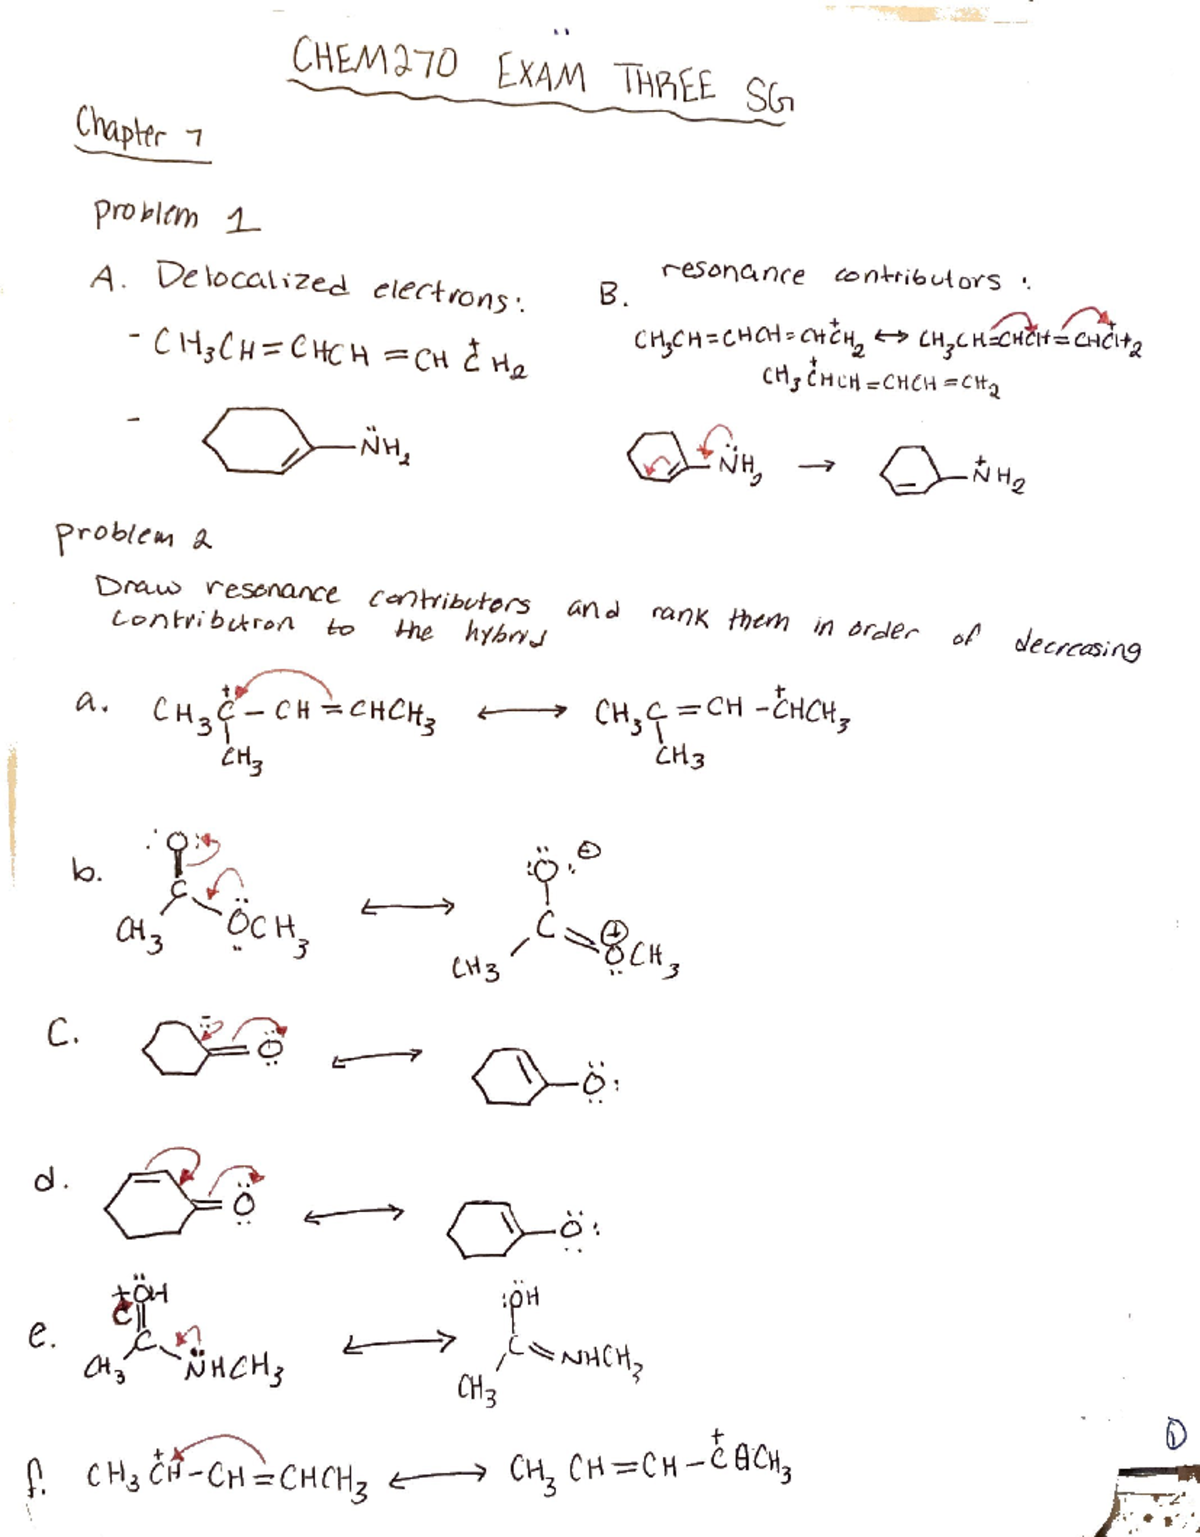 CHEM270 EXAM THREE SG
Chapter 7
problem 1
A. Delocalized electrons:
- CH₃CH=CHCH=CHC⁺H₂
-
N̈H₂
B. resonance contributors:
CH₃CH=CHCH=CHC⁺H₂ ↔ CH₃CH=CHCH=CHC⁺H₂
CH₃C⁺HCH=CHCH=CH₂
N̈H₂ → N⁺H₂
problem 2
Draw resonance contributors and rank them in order of decreasing
contribution to the hybrid
a. CH₃C⁺-CH=CHCH₃ ↔ CH₃C=CH-C⁺HCH₃
CH₃ CH₃
b. :O: ↔ :Ö:⊖
C C
CH₃ ÖCH₃ CH₃ ⊕OCH₃
C. Ö ↔ Ö:
d. Ö ↔ Ö:
e. +ÖH ↔ :ÖH
C C
CH₃ N̈HCH₃ CH₃ NHCH₃
f. CH₃C⁺H-CH=CHCH₃ ↔ CH₃CH=CH-C⁺HCH₃
1